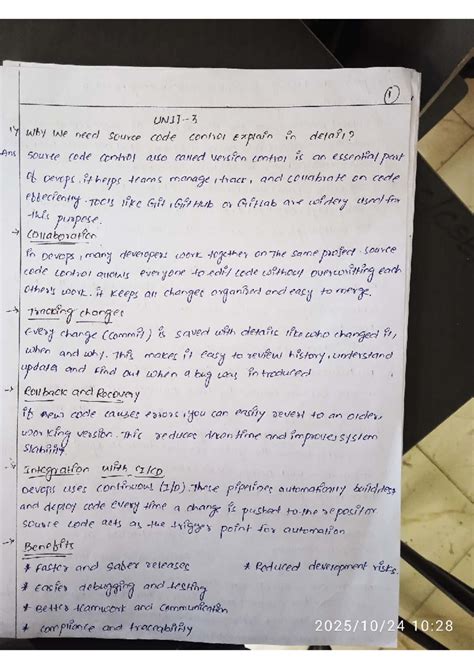 1
UNIT-3
1) Why We need source code control Explain in detail?
Ans source code control also called version control is an essential part
of Devops. it helps teams manage, track, and collabrate on code
effeciently. Tools like Git, GitHub or GitLab are widely used for
this purpose.
→ Collaboration
in Devops, many developers work together on the same project. source
code control allows everyone to edit code without overwriting each
other's work. it keeps all changes organised and easy to merge.
→ Tracking changes
Every change (commit) is saved with details like who changed it,
when and why. This makes it easy to review history, understand
updates and find out when a bug was introduced
→ Rollback and Recovery
if new code causes errors, you can easily revert to an older
working version. This reduces downtime and improves system
stability
→ Integration with CI/CD
Devops uses continuous (I/D). These pipelines automatically build, test
and deploy code every time a change is pushed to the repositor
source code acts as the trigger point for automation
→ Benefits
* Faster and saber releases * Reduced development risks.
* Easier debugging and testing
* Better teamwork and communication
* compliance and traceability
2025/10/24 10:28